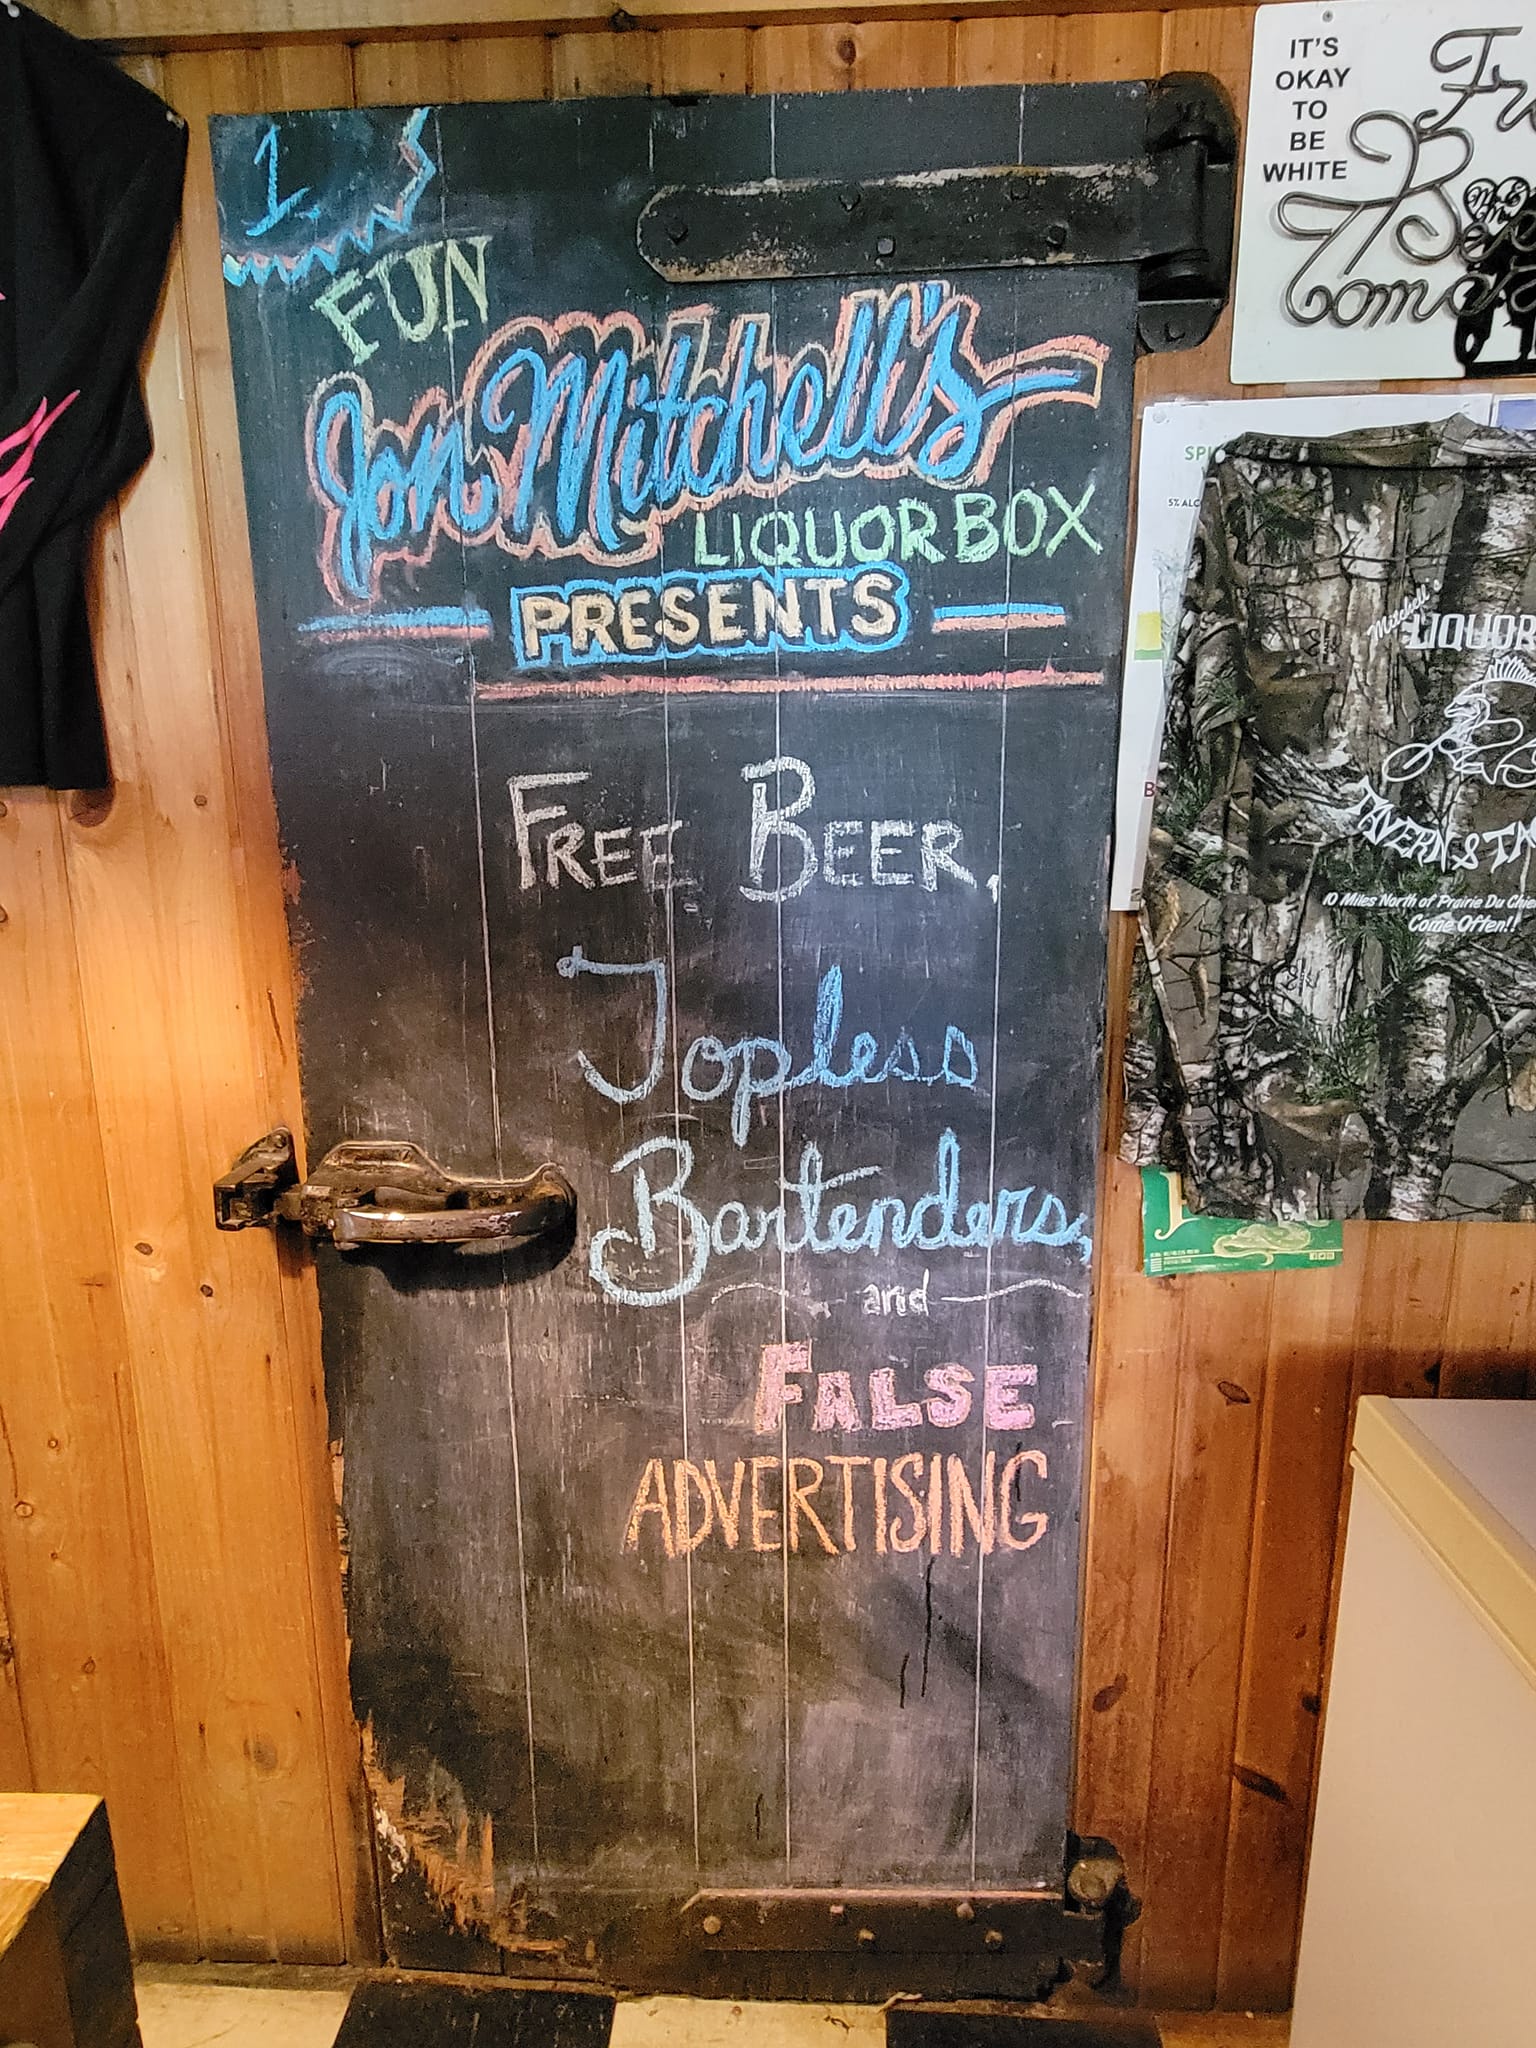 1.
FUN
Jon Mitchell's
LIQUOR BOX
PRESENTS
FREE BEER,
Topless
Bartenders,
and
FALSE
ADVERTISING
IT'S
OKAY
TO
BE
WHITE
Mitchell's
LIQUOR
TAVERN &
10 Miles North of Prairie Du
Come Often!!